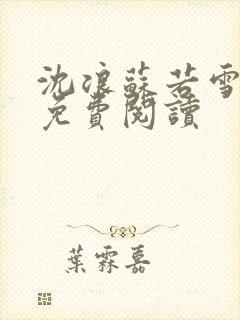 沈浪蘇若雪
免費閱讀
葉霖嘉